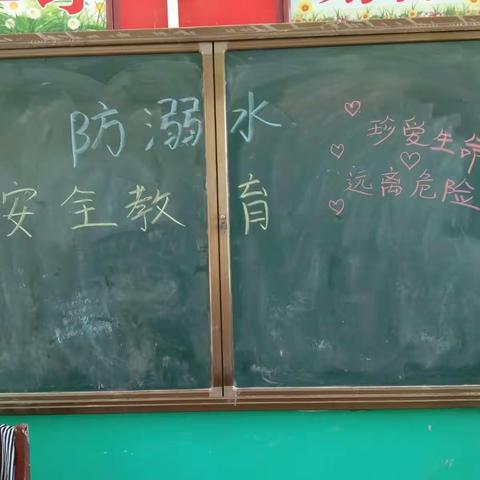 防溺水
安全教育
珍爱生命
远离危险